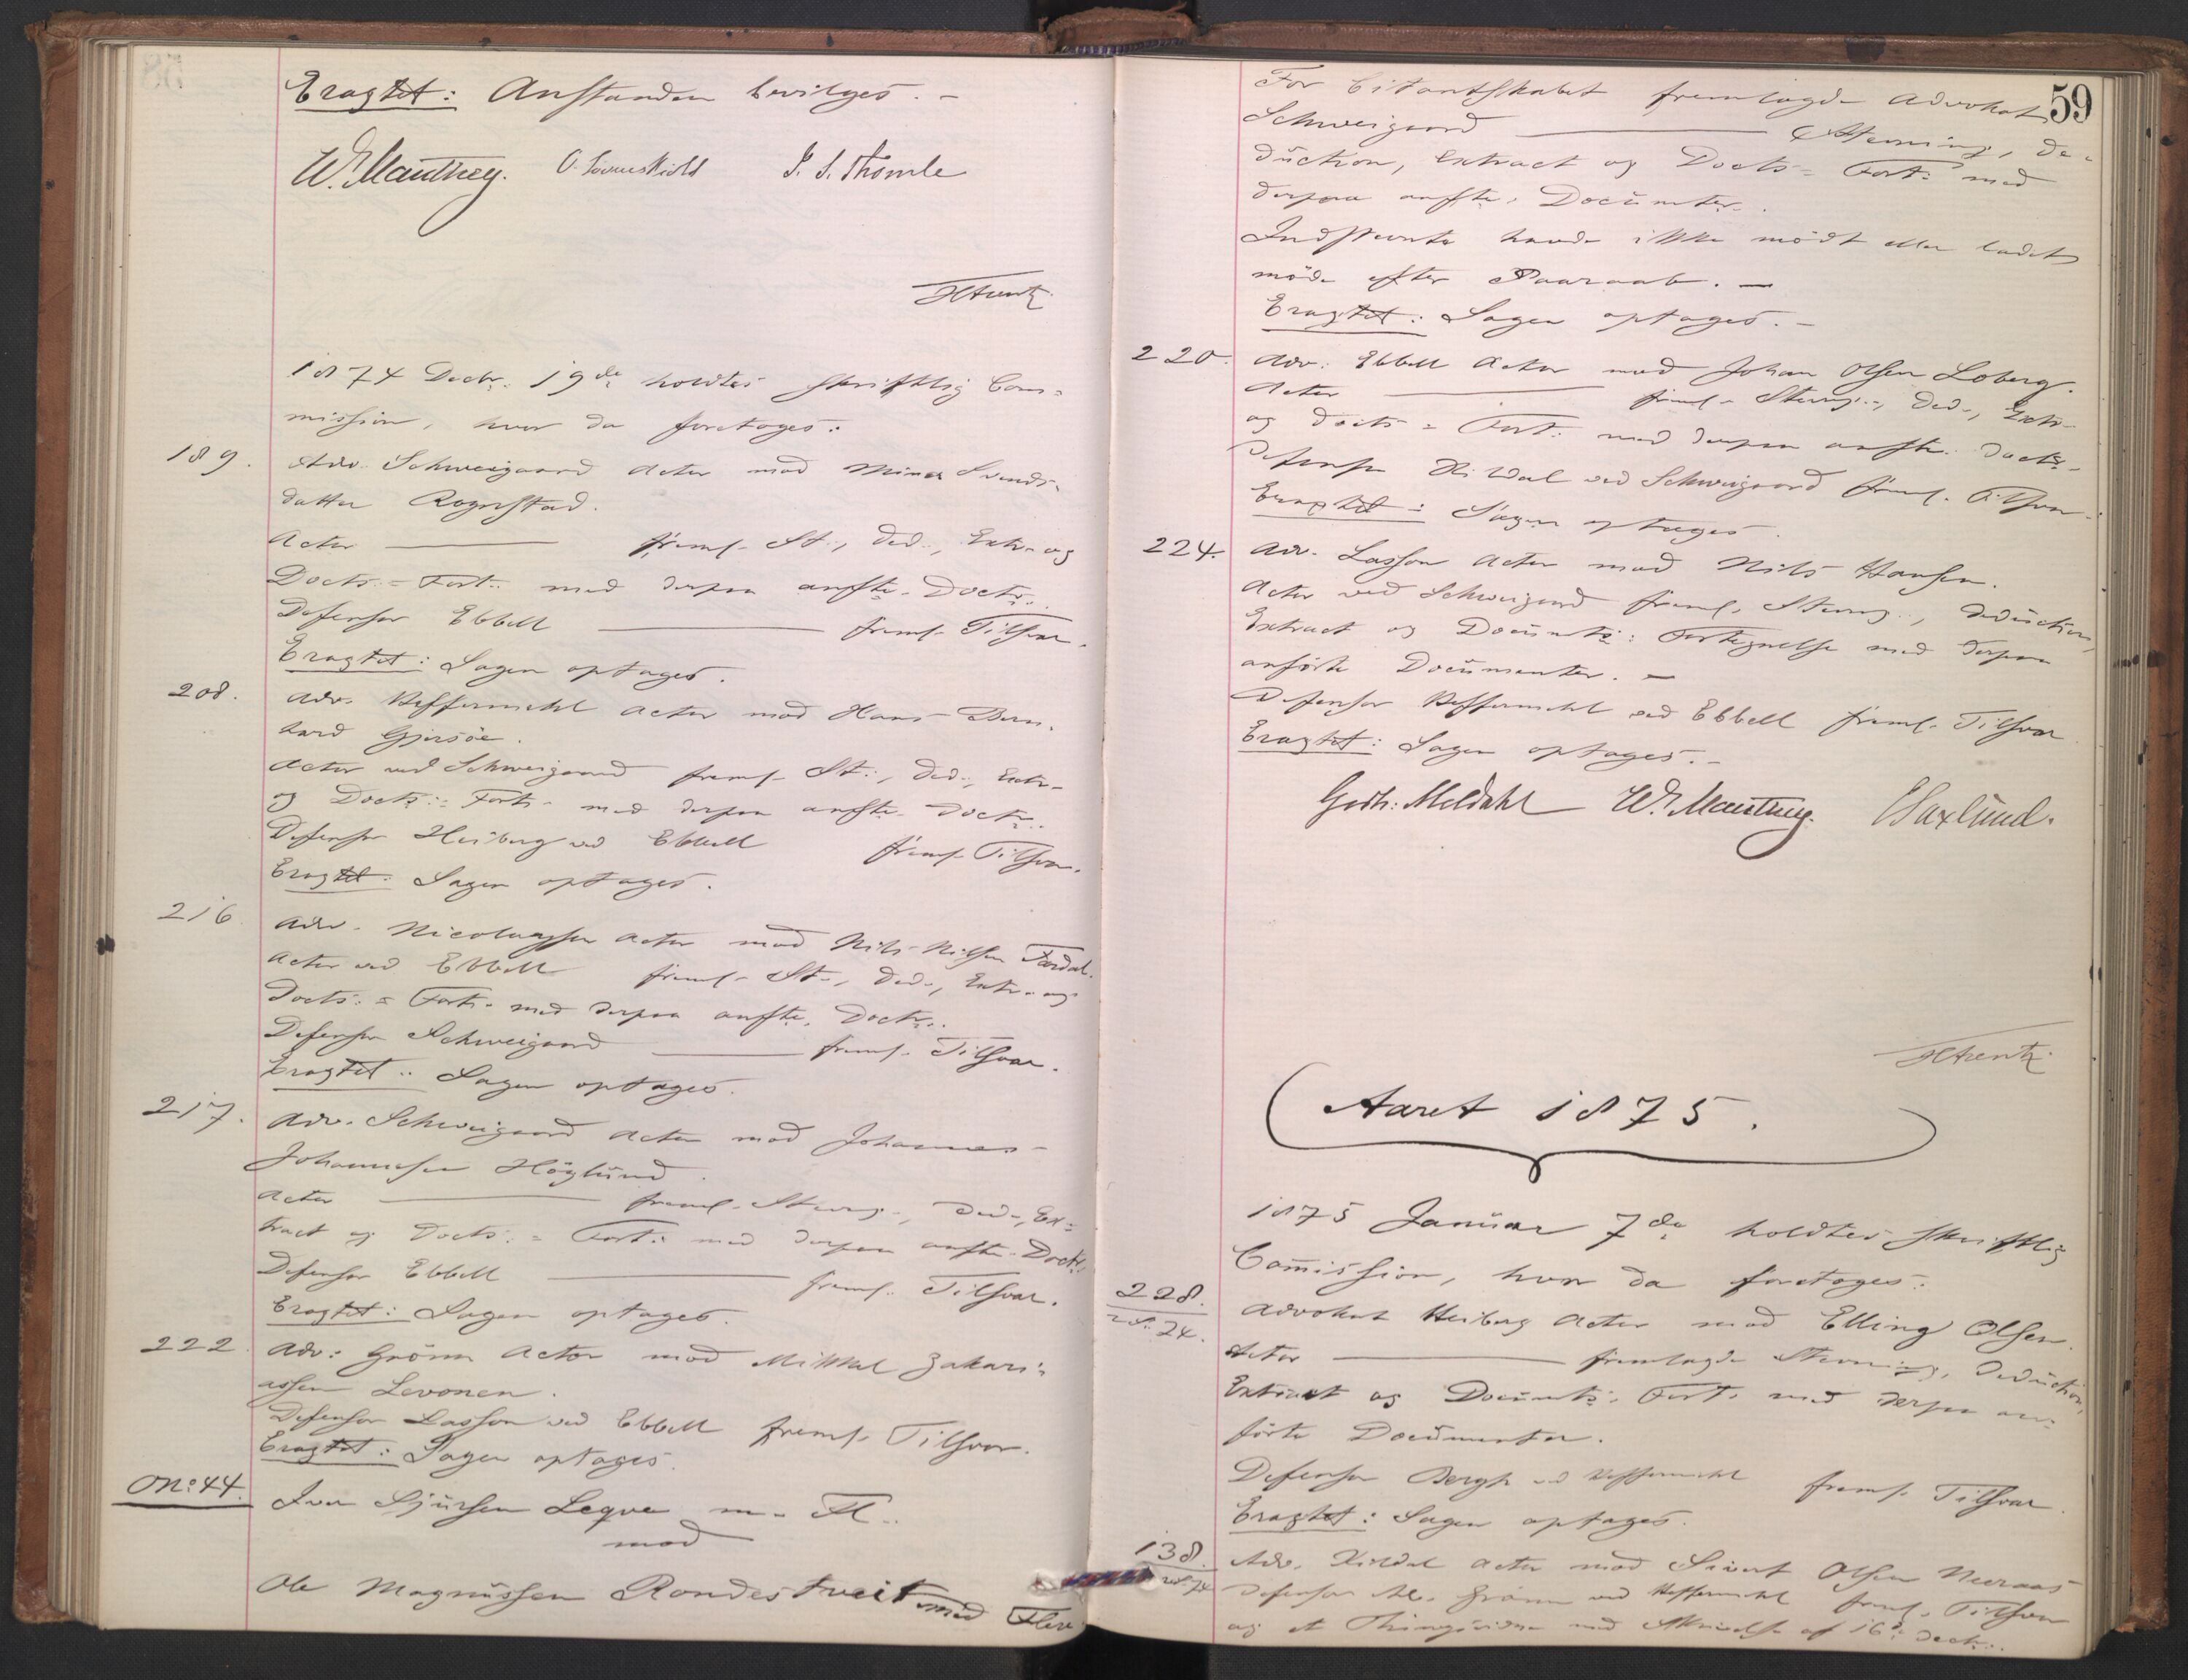 Eragtet: Anstanden bevilges. –
W. Manthey. O. Løvenskiold J. S. Thomle
HArentz
1874 Decbr. 19de holdtes skriftlig Com=
mission, hvor da foretoges:
189. Adv. Schweigaard Actor mod Mina Svends=
datter Rognstad.
Actor ——— freml. St., Ded., Extr. og
Docts.= Fort. med derpaa anfte. Doctr.
Defensor Ebbell ——— freml. Tilsvar.
Eragtet: Sagen optages.
208. Adv. Keffermehl Actor mod Hans Bern=
hard Gjersöe.
Actor ved Schweigaard freml. St., Ded., Extr.
og Docts.= Fort. med derpaa anfte. Doctr.
Defensor Heiberg ved Ebbell freml. Tilsvar.
Eragtet: Sagen optages.
216. Adv. Nicolaysen Actor mod Nils Nilsen
Actor ved Ebbell freml. St., Ded., Extr. og
Docts.= Fort. med derpaa anfte. Doctr.
Defensor Schweigaard ——— freml. Tilsvar.
Eragtet: Sagen optages.
217. Adv. Schweigaard Actor mod Johannes
Johannesen Höglund.
Actor ——— freml. Stevng., Ded., Ex=
tract og Docts.= Fort. med derpaa anfte. Doctr.
Defensor Ebbell ——— freml. Tilsvar.
Eragtet: Sagen optages.
222. Adv: Grönn Actor mod Mikkel Zakari=
assen Levonen.
Defensor Lasson ved Ebbell freml. Tilsvar.
Eragtet: Sagen optages.
No: 44. Iver Sjursen Leqve m. Fl.
mod
Ole Magnussen Rondestveit med Flere
59
For Citantskabet fremlagde Advokat
Schweigaard ——— Stevning, De=
duction, Extract og Docts= Fort: med
derpaa anfte. Documter.
Indstevnte havde ikke mödt eller ladet
möde efter Paaraab. —
Eragtet: Sagen optages. –
220. Adv. Ebbell Actor mod Johan Olsen Loberg.
Actor ——— freml. Stevng., Ded., Extr.
og Docts= Fort: med derpaa anfte. Doctr.
Defensor Kildal ved Schweigaard freml. Tilsvar.
Eragtet: Sagen optages.
224. Adv. Lasson Actor mod Nils Hansen.
Actor ved Schweigaard freml. Stevng., Deduction,
Extract og Documts: Fortegnelse med derpaa
anförte Documenter. —
Defensor Keffermehl ved Ebbell freml. Tilsvar
Eragtet: Sagen optages. –
Gerh: Meldahl W. Manthey. ESaxlund.
HArentz
Aaret 1875.
1875 Januar 7de holdtes skriftlig
Commission, hvor da foretoges:
228. Advokat Heiberg Actor mod Elling Olsen.
74.
Actor ——— fremlagde Stevning, Deduction,
Extract og Documts: Fort. med derpaa an=
förte Documenter.
Defensor Bergh ved Keffermehl freml. Tilsvar.
Eragtet: Sagen optages.
138. Adv. Kildal Actor mod Sivert Olsen Neeraas
74
Defensor Adv. Grönn ved Keffermehl freml. Tilsvar
og et Thingsvidne med Skrivelse af 16de Decbr.